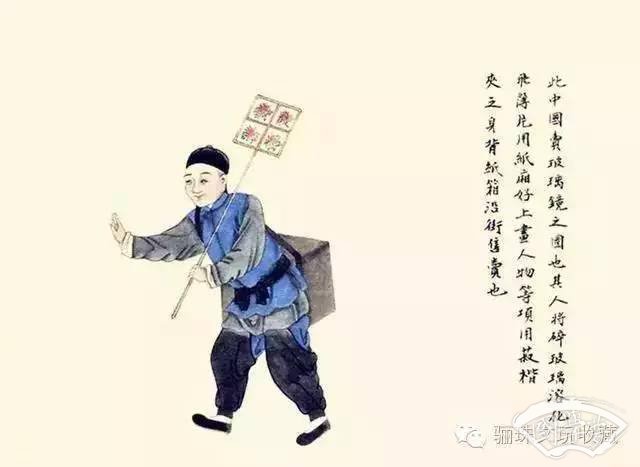 此中國賣玻璃鏡之圖也其人將碎玻璃溶化
飛薄片用紙廂好上畫人物等項用菽楷
夾之身背紙箱沿街售賣也
骊珠文玩收藏